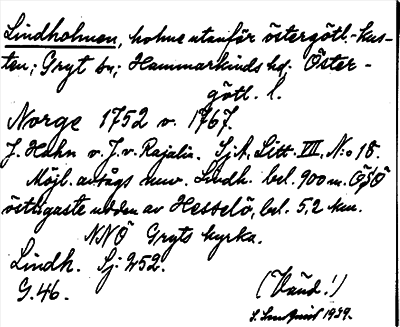 Lindholmen, holme utanför östergötl.-kus-
ten; Gryt sn; Hammarkinds hd; Öster-
götl. l.
Norge 1752 v. 1767.
J. Hahn v. J. v. Rajalin. SjA, Litt. VII, No 18.
Möjl. avsågs nuv. Lindh. bel. 900 m. OSO
östligaste udden av Hesselö, bel. 5,2 km.
NNO Gryts kyrka.
Lindh. Sj. 252.
G. 46.
(Vänd!)
1939.